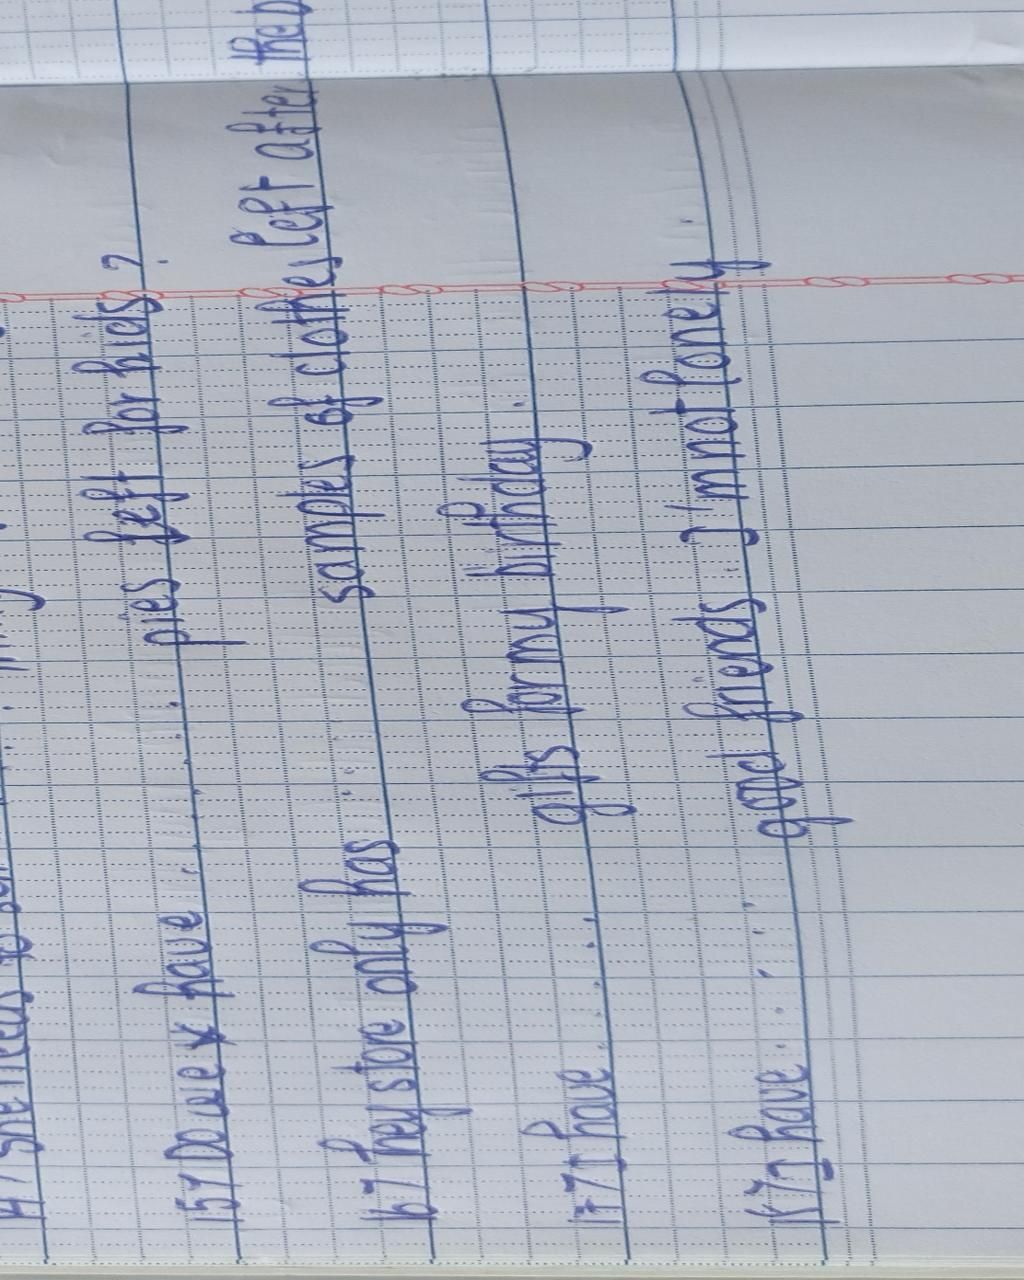 14/ She needs to
15/ Do we have ........ pies left for kids?
16/ They store only has ........ samples of clothes left after the
17/ I have ........ gifts for my birthday.
18/ I have ........ good friends. I'm not lonely.